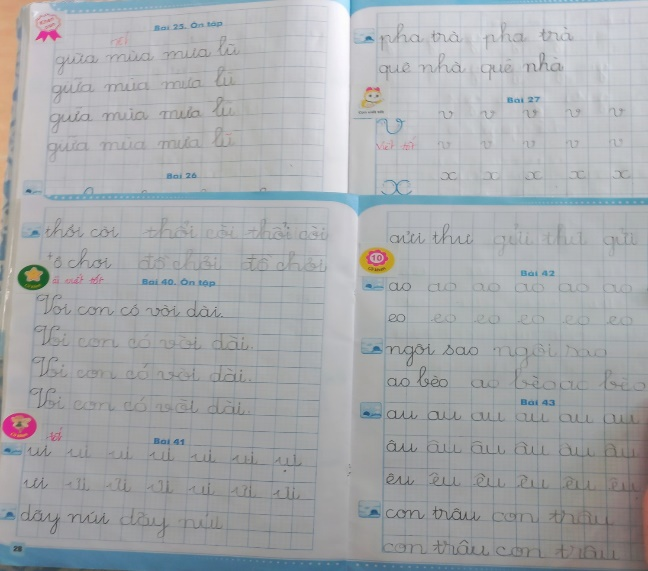 Bài 25. Ôn tập
giữa mùa mưa lũ
giữa mùa mưa lũ
giữa mùa mưa lũ
giữa mùa mưa lũ
Bài 26
pha trà pha trà
quê nhà quê nhà
Bài 27
v v v v v v
Viết tốt v v v v v
x x x x x x
thổi còi thổi còi thổi còi
chơi đồ chơi đồ chơi
viết tốt
Bài 40. Ôn tập
Voi con có vòi dài.
Voi con có vòi dài.
Voi con có vòi dài.
Voi con có vòi dài.
tốt
Bài 41
ui ui ui ui ui ui ui
ưi ưi ưi ưi ưi ưi ưi
dãy núi dãy núi
28
gửi thư gửi thư gửi
10
Bài 42
ao ao ao ao ao ao
eo eo eo eo eo eo
ngôi sao ngôi sao
ao bèo ao bèo ao bèo
Bài 43
au au au au au au
âu âu âu âu âu âu
êu êu êu êu êu êu
con trâu con trâu
con trâu con trâu